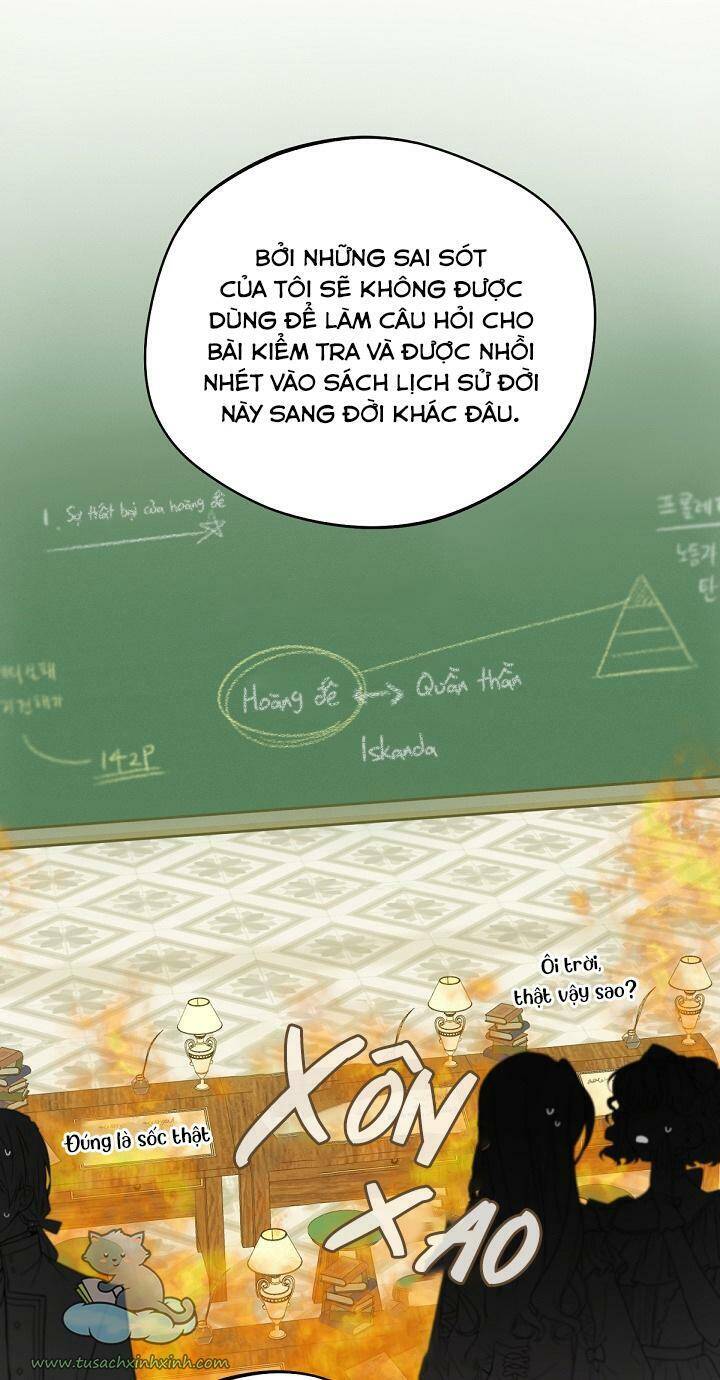 BỞI NHỮNG SAI SÓT
CỦA TÔI SẼ KHÔNG ĐƯỢC
DÙNG ĐỂ LÀM CÂU HỎI CHO
BÀI KIỂM TRA VÀ ĐƯỢC NHỒI
NHÉT VÀO SÁCH LỊCH SỬ ĐỜI
NÀY SANG ĐỜI KHÁC ĐÂU.
1. Sự thất bại của hoàng đế
프롤레
노동기
탄
Hoàng đế <-> Quần thần
Iskanda
142P
Ôi trời,
thật vậy sao?
XÔN
Đúng là sốc thật
XAO
www.tusachxinhxinh.com